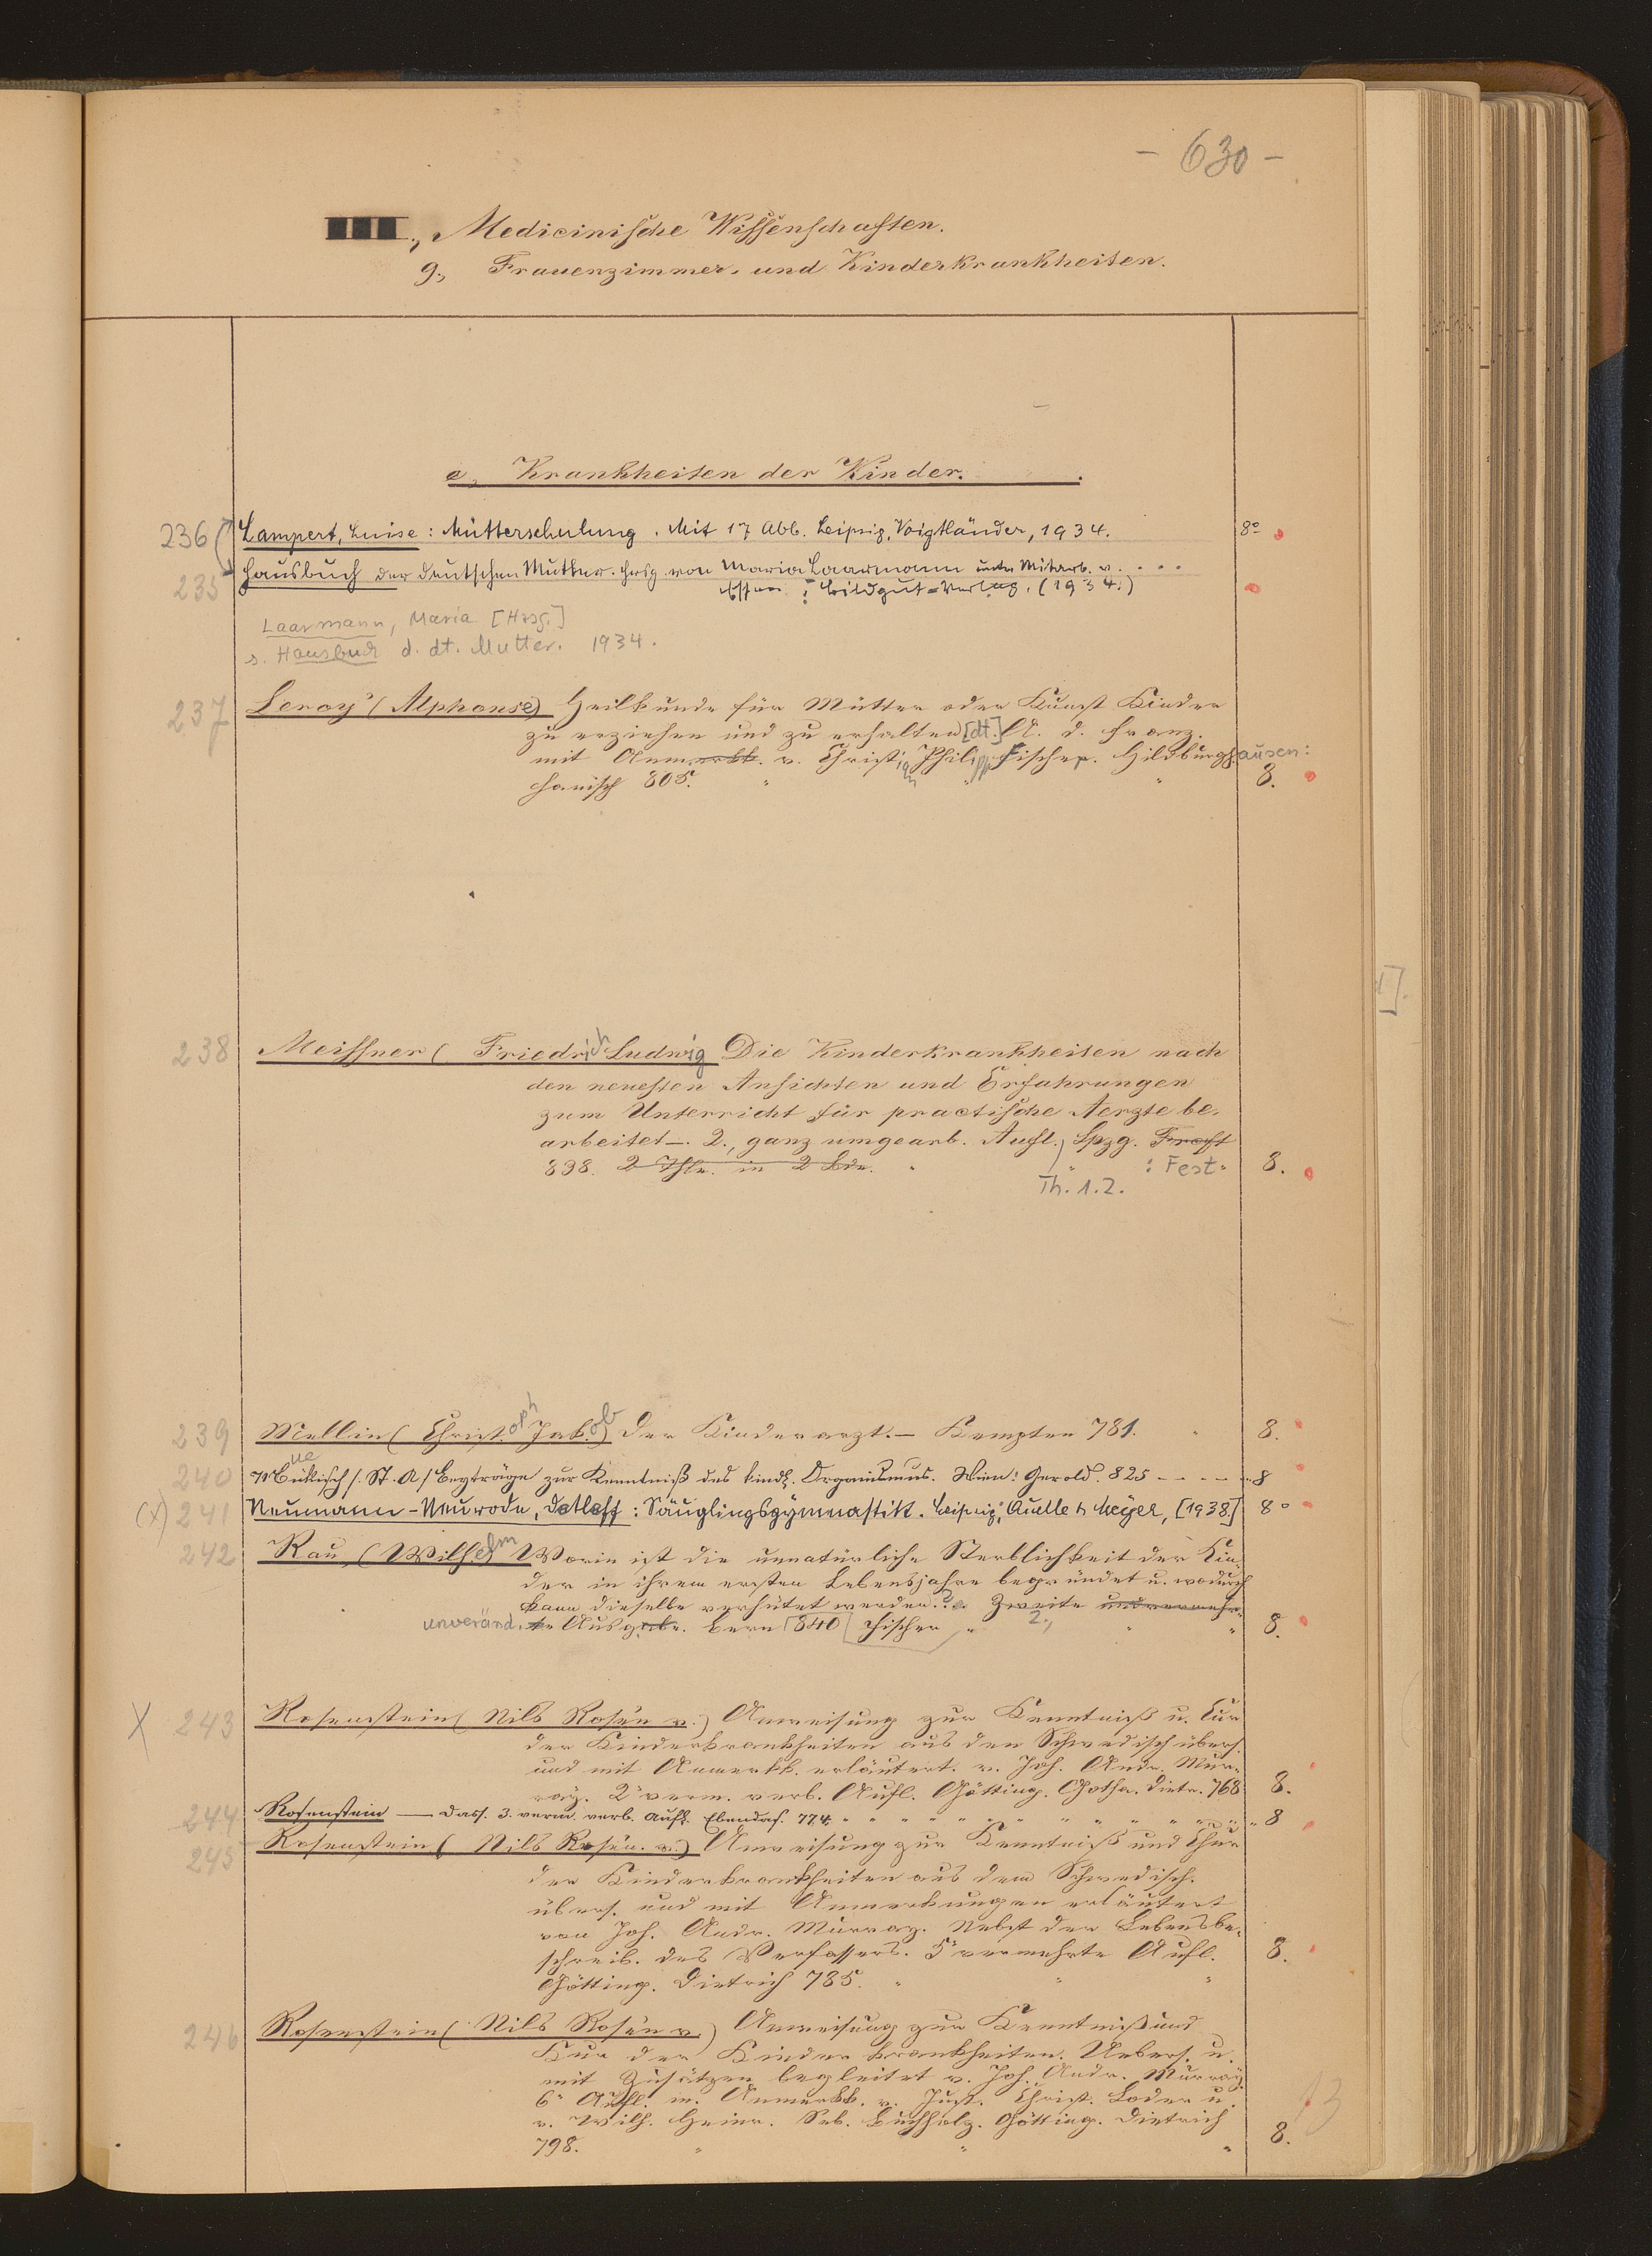 - 630 -
III., Medicinische Wissenschaften.
g., Frauenzimmer- und Kinderkrankheiten.
e, Krankheiten der Kinder.
236 Lampert, Luise: Mütterschulung. Mit 17 Abb. Leipzig, Voigtländer, 1934. 8°
235 Hausbuch der deutschen Mutter. Hrsg. von Maria Laarmann unter Mitarb. v. . . .
Essen: Bildgut=Verlag. (1934.)
Laarmann, Maria [Hrsg.]
s. Hausbuch d. dt. Mutter. 1934.
237 Leroy (Alphonse) Heilkunde für Mütter oder Kunst Kinder
zu erziehen und zu erhalten [dt.] A. d. Franz.
mit Anmerkk. v. Christian Philipp Fischer. Hildburghausen:
Hanisch 805. 8.
238 Meissner (Friedrich Ludwig Die Kinderkrankheiten nach
den neuesten Ansichten und Erfahrungen
zum Unterricht für practische Aerzte be-
arbeitet. 2., ganz umgearb. Aufl. Lpzg.
838. 2 Thle. in 2 Bde. : Fest. 8.
Th. 1.2.
239 Mellin (Christoph Jakob) Der Kinderarzt. Kempten 781. 8.
240 /: St. A / Beyträge zur Kenntniß des kindl. Organismus. Wien: Gerold. 825 8
(x) 241 Neumann-Neurode, Detleff: Säuglingsgymnastik. Leipzig, Quelle & Meyer, [1938] 8°
242 Rau, (Wilhelm Worin ist die unnatürliche Sterblichkeit der Kin-
der in ihrem ersten Lebensjahre begründet u. wodurch
kann dieselbe verhütet werden? Zweite und vermehr-
unveränd. te Ausgabe. Bern 840 Fischer 2., 8.
X 243 Rosenstein (Nils Rosén v.) Anweisung zur Kenntniß u. Cur
der Kinderkrankheiten aus den Schwedisch übers.
und mit Anmerkk. erläutert. v. Joh. Andr. Mur-
ray. 2e verm. verb. Aufl. Götting. Gotha. Dietr. 768 8.
244 Rosenstein — Dass. 3. verm. verb. Aufl. Ebendas. 774. 8
245 Rosenstein (Nils Rosén. v.) Anweisung zur Kenntniß und Chur
der Kinderkrankheiten aus dem Schwedisch.
übers. und mit Anmerkungen erläutert
von Joh. Andr. Murray. Nebst der Lebensbe-
schreib. des Verfassers. 5e vermehrte Aufl. 8.
Götting. Dietrich 785.
246 Rosenstein (Nils Rosén v.) Anweisung zur Kenntniß und
Kur der Kinderkrankheiten. Uebers. u.
mit Zusätzen begleitet v. Joh. Andr. Murray.
6e Aufl. m. Anmerkk. v. Just. Christ. Loder u.
v. Wilh. Heinr. Seb. Buchholz. Götting. Dietrich
798. 8.
13